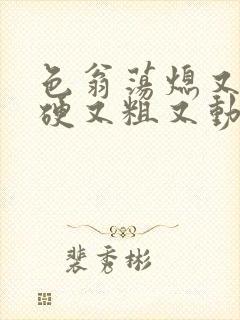 色翁荡熄又
硬又粗又動
裴秀彬